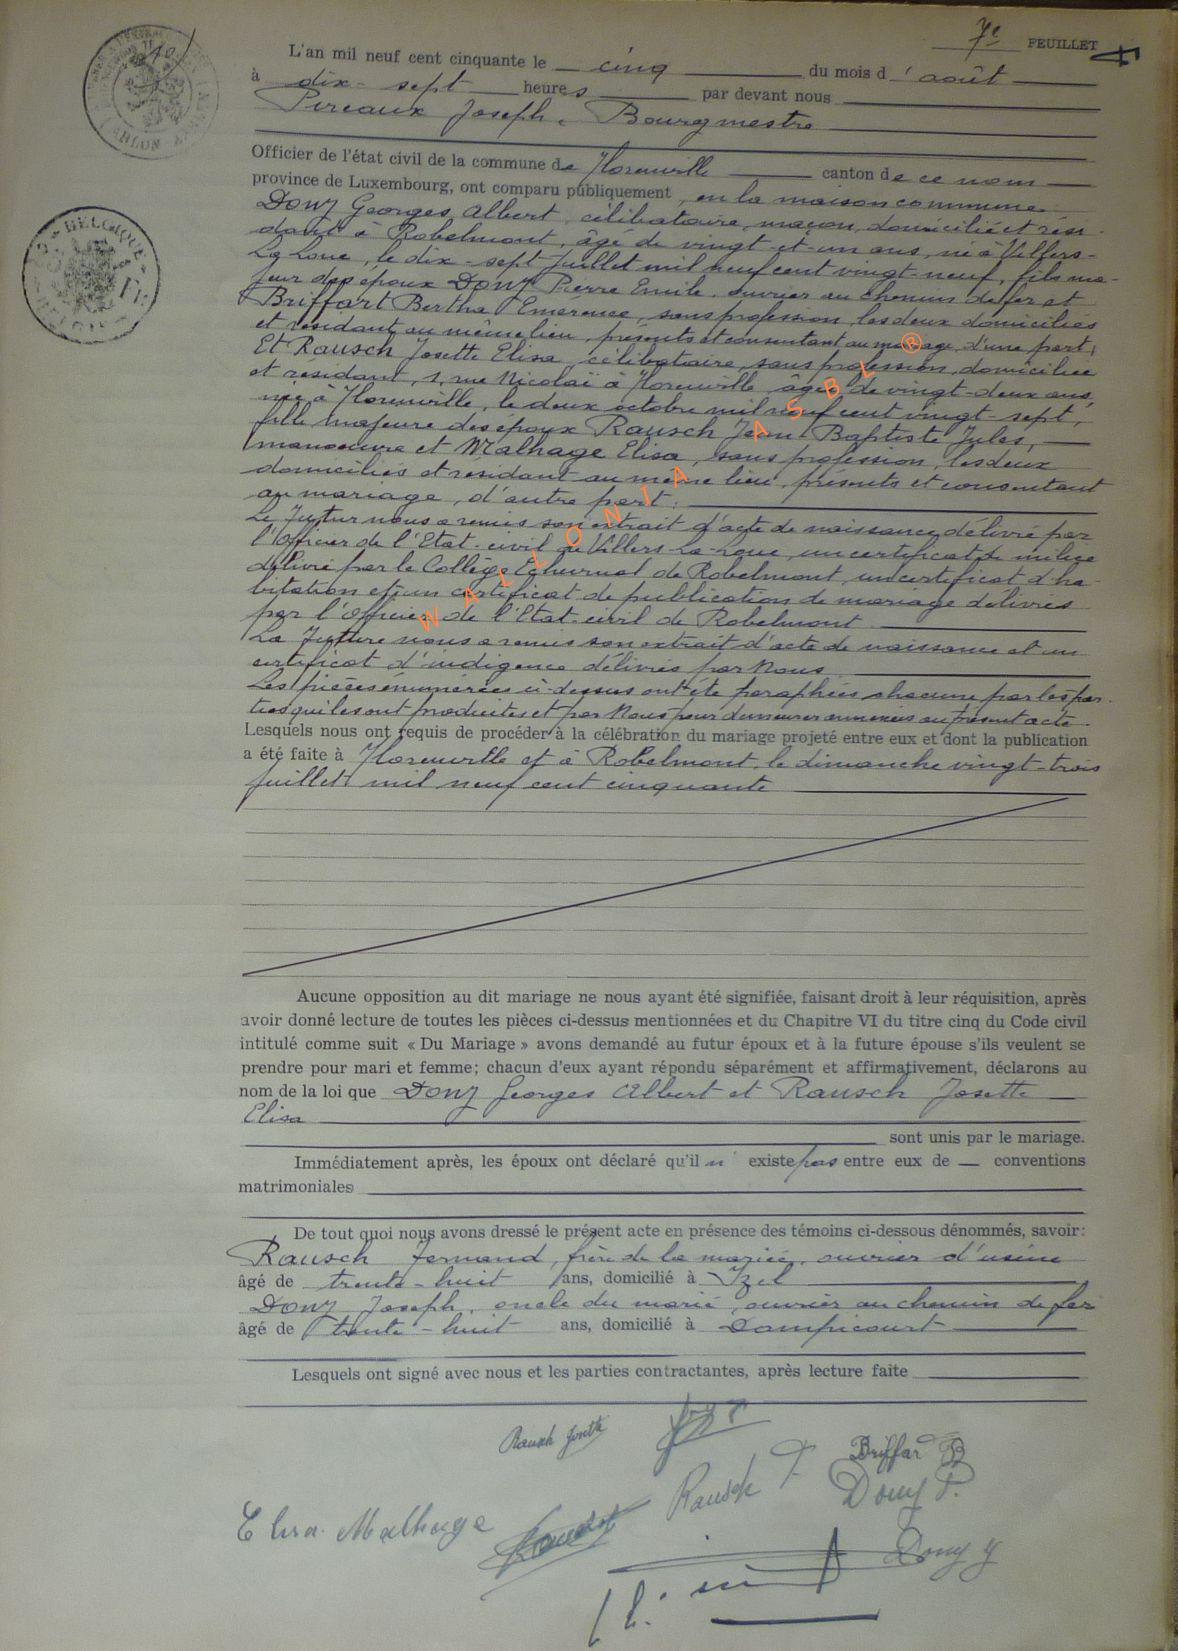 7e FEUILLET
L'an mil neuf cent cinquante le cinq du mois d'août
à dix-sept heures par devant nous
Pireaux Joseph, Bourgmestre
Officier de l'état civil de la commune de Florenville canton de ce nom
province de Luxembourg, ont comparu publiquement, en la maison commune
Dony Georges Albert, célibataire, maçon, domicilié et rési-
dant à Robelmont, âgé de vingt-et-un ans, né à Villers-
La Loue, le dix-sept Juillet mil neuf cent vingt-neuf, fils ma-
jeur des époux Dony Pierre Emile, ouvrier au chemin de fer et
Briffart Bertha Emérence, sans profession, les deux domiciliés
et résidant au même lieu, présents et consentant au mariage, d'une part,
Et Rausch Josette Elisa, célibataire, sans profession, domiciliée
et résidant, 1, rue Nicolaï à Florenville, âgée de vingt-deux ans,
née à Florenville, le deux octobre mil neuf cent vingt-sept,
fille majeure des époux Rausch Jean-Baptiste Jules,
manoeuvre et Malhage Elisa, sans profession, les deux
domiciliés et résidant au même lieu, présents et consentant
au mariage, d'autre part.
Le futur nous a remis son extrait d'acte de naissance délivré par
l'Officier de l'Etat-civil de Villers-La-Loue, un certificat de milice
délivré par le Collège Echevinal de Robelmont, un certificat d'ha-
bitation et un certificat de publication de mariage délivrés
par l'Officier de l'Etat-civil de Robelmont.
La future nous a remis son extrait d'acte de naissance et un
certificat d'indigence délivrés par Nous
Les pièces énumérées ci-dessus ont été paraphées chacune par les par-
ties qui les ont produites et par Nous pour demeurer annexées au présent acte.
Lesquels nous ont requis de procéder à la célébration du mariage projeté entre eux et dont la publication
a été faite à Florenville et à Robelmont, le dimanche vingt-trois
juillet mil neuf cent cinquante
WALLONIA ASBL ®
Aucune opposition au dit mariage ne nous ayant été signifiée, faisant droit à leur réquisition, après
avoir donné lecture de toutes les pièces ci-dessus mentionnées et du Chapitre VI du titre cinq du Code civil
intitulé comme suit « Du Mariage » avons demandé au futur époux et à la future épouse s'ils veulent se
prendre pour mari et femme; chacun d'eux ayant répondu séparément et affirmativement, déclarons au
nom de la loi que Dony Georges Albert et Rausch Josette
Elisa
sont unis par le mariage.
Immédiatement après, les époux ont déclaré qu'il n'existe pas entre eux de conventions
matrimoniales
De tout quoi nous avons dressé le présent acte en présence des témoins ci-dessous dénommés, savoir:
Rausch Fernand, frère de la mariée, ouvrier d'usine
âgé de trente-huit ans, domicilié à Izel
Dony Joseph, oncle du marié, ouvrier au chemin de fer
âgé de trente-huit ans, domicilié à Dampicourt
Lesquels ont signé avec nous et les parties contractantes, après lecture faite
Rausch Josette
Briffar B
Rausch F
Dony P.
Elisa Malhage
Dony J